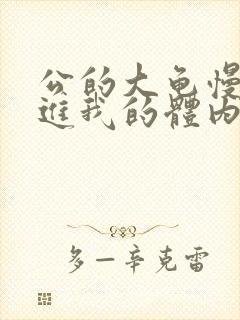 公的大龟慢
进我的體内
多一辛克雷